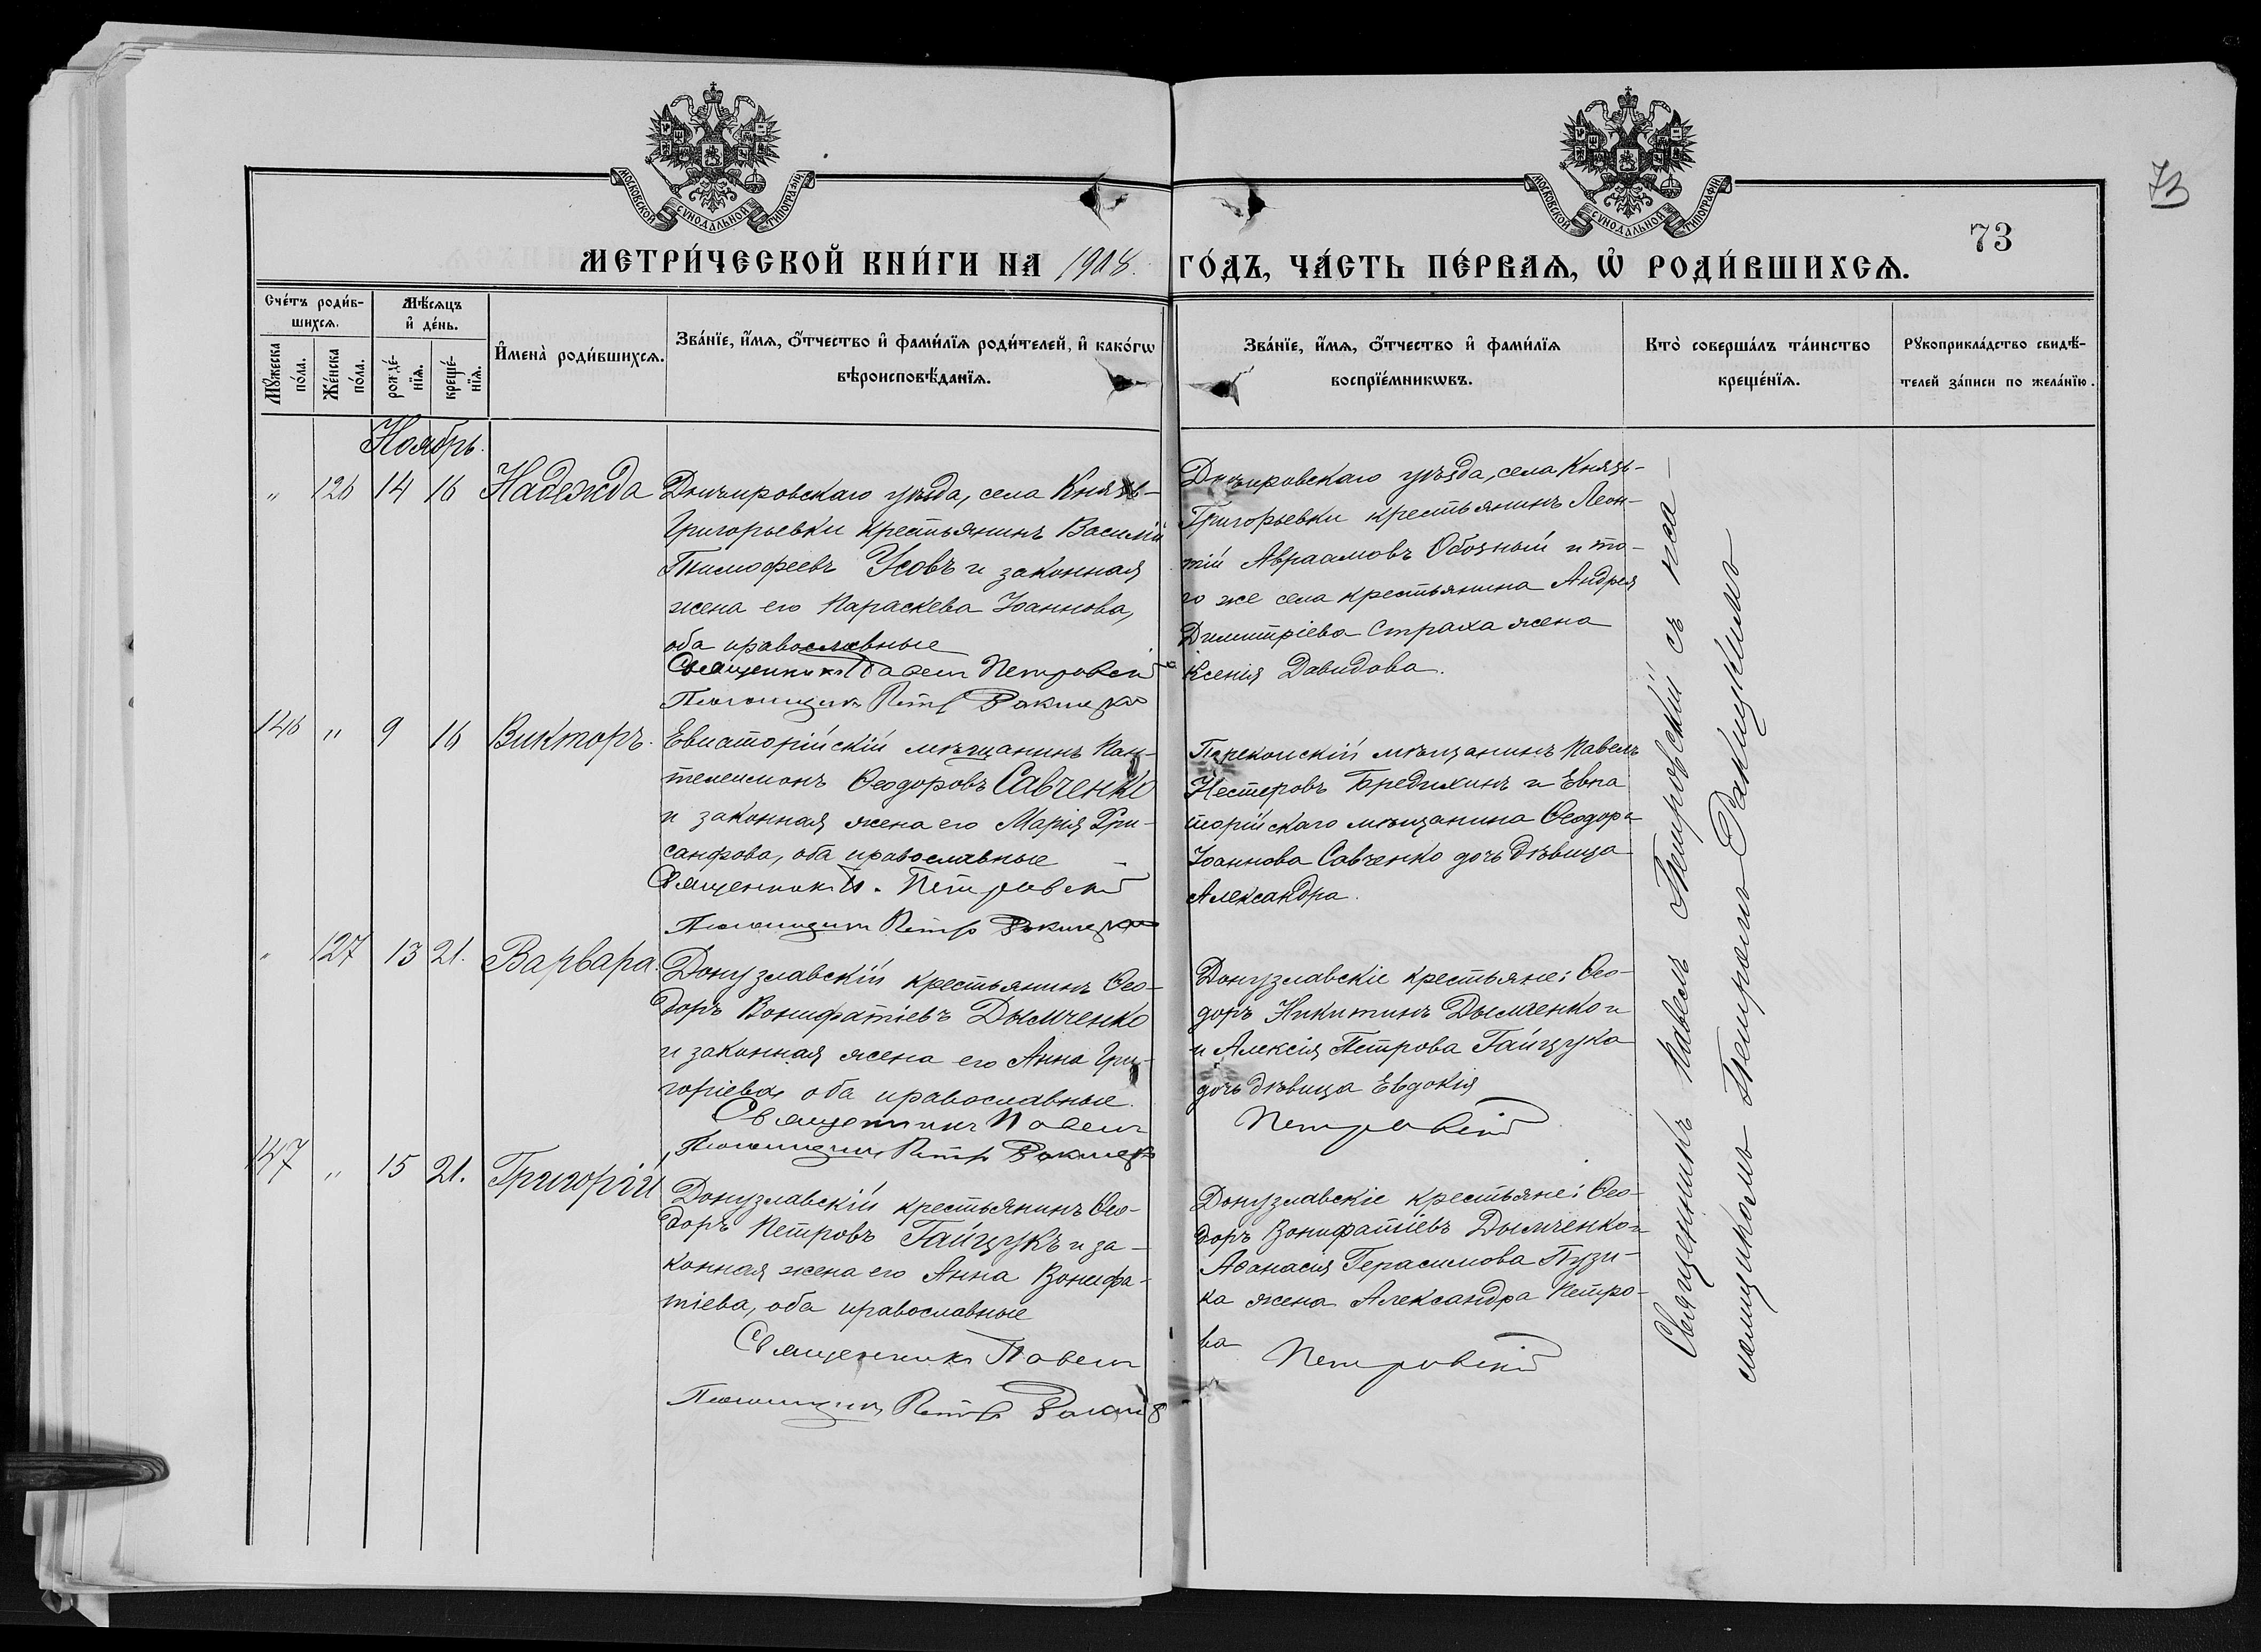 МОСКОВСКОЙ СѴНОДАЛЬНОЙ ТИПОГРАФІИ
МОСКОВСКОЙ СѴНОДАЛЬНОЙ ТИПОГРАФІИ
73
73
МЕТРИ́ЧЕСКОЙ КНИ́ГИ НА 1908. ГО́ДЪ, ЧА́СТЬ ПЕ́РВАѦ, Ѡ҆ РОДИ́ВШИХСѦ.
Сче́тъ роди́в-
шихсѧ.
Мѣ́сѧцъ
и҆ де́нь.
Мꙋ́жеска по́ла.
Же́нска по́ла.
рожде́-
нїѧ.
креще́-
нїѧ.
И҆мена̀ роди́вшихсѧ.
Зва́нїе, и҆́мѧ, ѻ҆́тчество и҆ фами́лїѧ роди́телей, и҆ како́гѡ
вѣроисповѣ́данїѧ.
Зва́нїе, и҆́мѧ, ѻ҆́тчество и҆ фами́лїѧ
воспрїе́мникѡвъ.
Кто̀ соверша́лъ та́инство
креще́нїѧ.
Рꙋкоприкла́дство свидѣ́-
телей за́писи по жела́нїю.
Ноябрь.
" 126 14 16 Надежда
Днѣпровскаго уѣзда, села Князь-
Григорьевки крестьянинъ Василій
Тимофеевъ Усовъ и законная
жена его Параскева Іоаннова,
оба православные
Священникъ Павелъ Петровскій
Псаломщикъ Петръ Ракицкій
Днѣпровскаго уѣзда, села Князь-
Григорьевки крестьянинъ Леон-
тій Авраамовъ Обозный и то-
го же села крестьянина Андрея
Димитріева Страха жена
Ксенія Давидова.
146 " 9 16 Викторъ.
Евпаторійскій мѣщанинъ Пан-
телеимонъ Ѳеодоровъ Савченко
и законная жена его Марія Хри-
санфова, оба православные
Священникъ П. Петровскій
Псаломщикъ Петръ Ракицкій
Перекопскій мѣщанинъ Павелъ
Нестеровъ Бредихинъ и Евпа
торійскаго мѣщанина Ѳеодора
Іоаннова Савченко дочь дѣвица
Александра.
" 127 13 21. Варвара.
Донузлавскій крестьянинъ Ѳео-
доръ Вонифатіевъ Дымченко
и законная жена его Анна Гри-
горіева, оба православные.
Священникъ Павелъ
Псаломщикъ Петръ Ракицкій
Донузлавскіе крестьяне: Ѳео-
доръ Никитинъ Дымченко и
и Алексія Петрова Гайцука
дочь дѣвица Евдокія
Петровскій
147 " 15 21. Григорій
Донузлавскій крестьянинъ Ѳео-
доръ Петровъ Гайцукъ и за-
конная жена его Анна Вонифа-
тіева, оба православные
Священникъ Павелъ
Псаломщикъ Петръ
Донузлавскіе крестьяне: Ѳео-
доръ Вонифатіевъ Дымченко и
Аѳанасія Герасимова Пузи-
ка жена Александра Петро-
ва
Петровскій
Священникъ Павелъ Петровскій съ пса-
ломщикомъ Петромъ Ракицкимъ